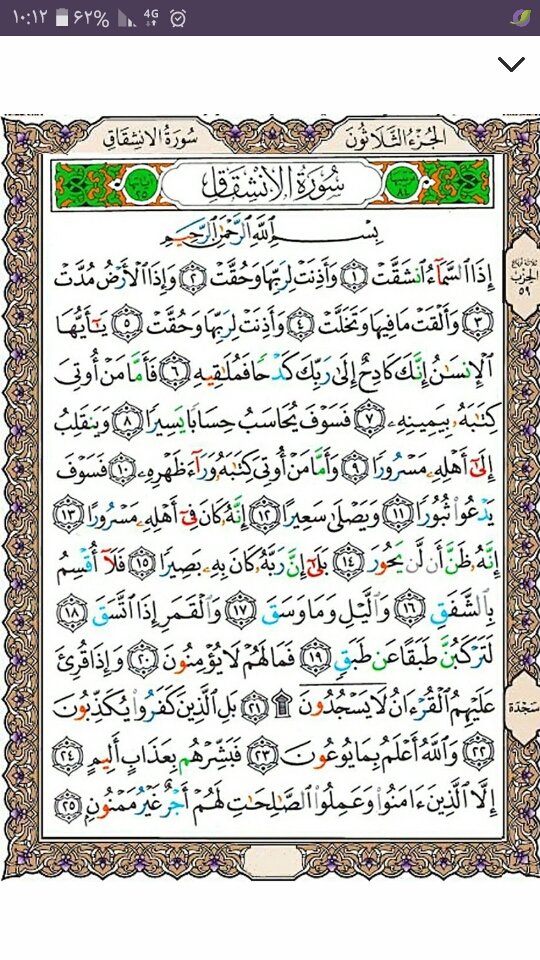 ١٠:١٢ ٦٢% 4G
سُورَةُ الانشِقَاقِ الجُزءُ الثَّلَاثُونَ
سُورَةُ الانْشِقَاقِ
بِسْمِ اللَّهِ الرَّحْمَٰنِ الرَّحِيمِ
إِذَا السَّمَآءُ انشَقَّتْ ١ وَأَذِنَتْ لِرَبِّهَا وَحُقَّتْ ٢ وَإِذَا الْأَرْضُ مُدَّتْ
الحزب
٥٩
٣ وَأَلْقَتْ مَا فِيهَا وَتَخَلَّتْ ٤ وَأَذِنَتْ لِرَبِّهَا وَحُقَّتْ ٥ يَٰٓأَيُّهَا
الْإِنسَٰنُ إِنَّكَ كَادِحٌ إِلَىٰ رَبِّكَ كَدْحًا فَمُلَٰقِيهِ ٦ فَأَمَّا مَنْ أُوتِىَ
كِتَٰبَهُۥ بِيَمِينِهِۦ ٧ فَسَوْفَ يُحَاسَبُ حِسَابًا يَسِيرًا ٨ وَيَنقَلِبُ
إِلَىٰٓ أَهْلِهِۦ مَسْرُورًا ٩ وَأَمَّا مَنْ أُوتِىَ كِتَٰبَهُۥ وَرَآءَ ظَهْرِهِۦ ١٠ فَسَوْفَ
يَدْعُوا۟ ثُبُورًا ١١ وَيَصْلَىٰ سَعِيرًا ١٢ إِنَّهُۥ كَانَ فِىٓ أَهْلِهِۦ مَسْرُورًا ١٣
إِنَّهُۥ ظَنَّ أَن لَّن يَحُورَ ١٤ بَلَىٰٓ إِنَّ رَبَّهُۥ كَانَ بِهِۦ بَصِيرًا ١٥ فَلَآ أُقْسِمُ
بِالشَّفَقِ ١٦ وَالَّيْلِ وَمَا وَسَقَ ١٧ وَالْقَمَرِ إِذَا اتَّسَقَ ١٨
لَتَرْكَبُنَّ طَبَقًا عَن طَبَقٍ ١٩ فَمَا لَهُمْ لَا يُؤْمِنُونَ ٢٠ وَإِذَا قُرِئَ
عَلَيْهِمُ الْقُرْءَانُ لَا يَسْجُدُونَ ۩ ٢١ بَلِ الَّذِينَ كَفَرُوا۟ يُكَذِّبُونَ
سَجْدَة
٢٢ وَاللَّهُ أَعْلَمُ بِمَا يُوعُونَ ٢٣ فَبَشِّرْهُم بِعَذَابٍ أَلِيمٍ ٢٤
إِلَّا الَّذِينَ ءَامَنُوا۟ وَعَمِلُوا۟ الصَّٰلِحَٰتِ لَهُمْ أَجْرٌ غَيْرُ مَمْنُونٍ ٢٥